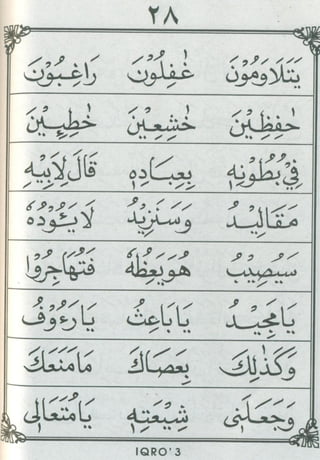 ٢٨
يَتَلَاوَمُوْنَ غٰفِلُوْنَ رَاغِبُوْنَ
حٰفِظِيْنَ خٰشِعِيْنَ خٰطِـِٕيْنَ
فِيْ بُطُوْنِهٖ بِعِبَادِهٖ قَالَ لِاَبِيْهِ
مَقَالِيْدُ وَسَنَزِيْدُ لَا يَـُٔوْدُهٗ
سَيُصِيْبُ هُوَيَعِظُهٗ فَتُهَاجِرُوْا
يَا مَجِيْدُ يَا بَاعِثُ يَا رَءُوْفُ
وَكَذٰلِكَ بِعَصَاكَ مَا مَنَعَكَ
وَجَعَلَنِيْ شِيْعَتِهٖ يَا مُتَعَالِى
IQRO'3